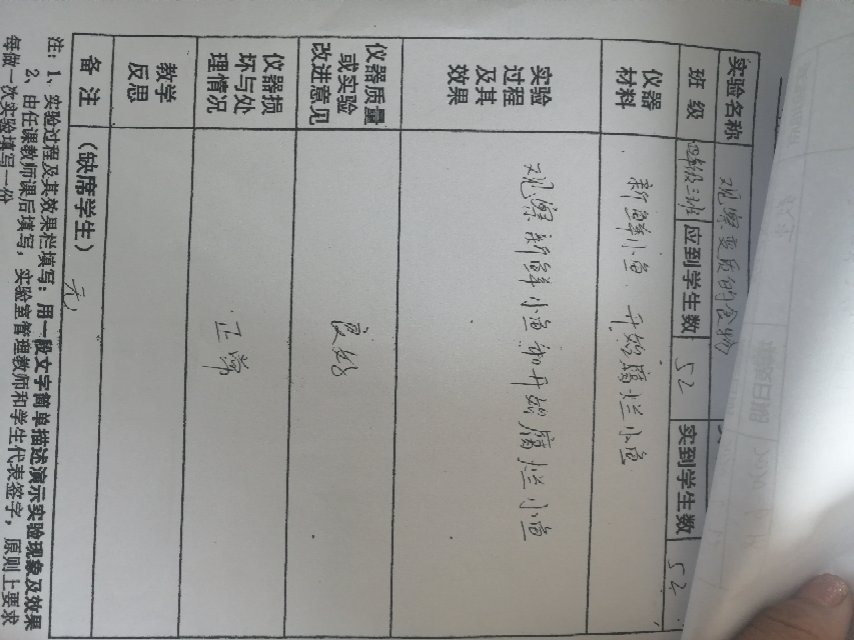 实验名称 观察变质的食物
班级 四年级三班 应到学生数 52 实到学生数 52
仪器材料 新鲜小鱼.开始腐烂小鱼
实验过程及其效果 观察新鲜小鱼和开始腐烂小鱼
仪器质量或实验改进意见 良好
仪器损坏与处理情况 正常
教学反思
备注 (缺席学生) 无
注:1、实验过程及其效果栏填写:用一段文字简单描述演示实验现象及效果
2、由任课教师课后填写,实验室管理教师和学生代表签字,原则上要求
每做一次实验填写一份